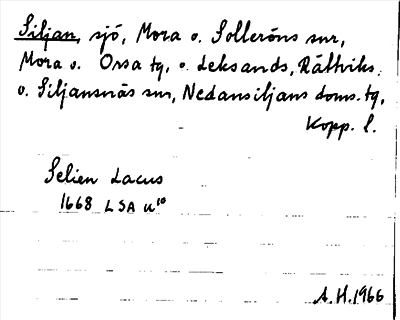 Siljan, sjö, Mora o. Solleröns snr,
Mora o. Orsa tg, o. Leksands, Rättviks
o. Siljansnäs snr, Nedansiljans doms. tg,
Kopp. l.
Selien Lacus
1668 LSA U¹⁰
A.H. 1966